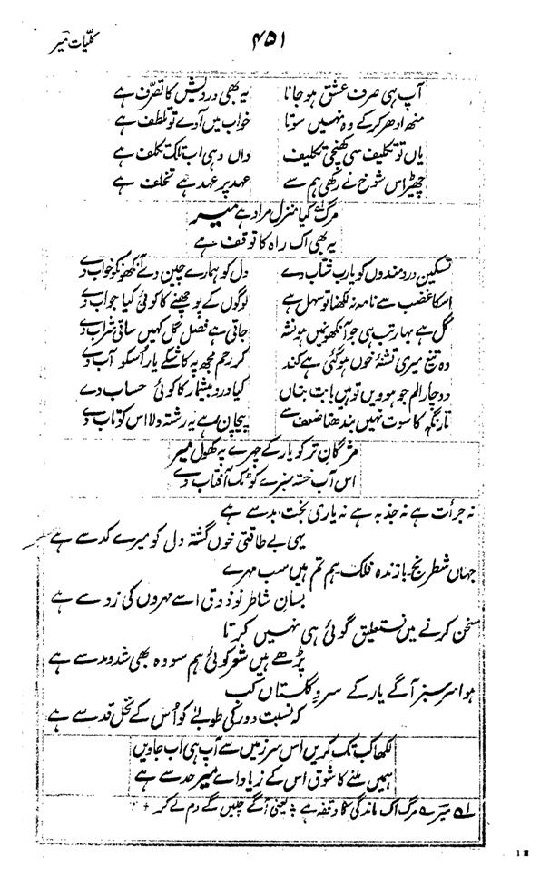 کلیات میر
۴۵۱
آپ ہی صرف عشق ہو جانا یہ بھی درویش کا تصرف ہے
منھ ادھر کر کے وہ نہیں سوتا خواب میں آوے تو تلطف ہے
یاں تو تکلیف سی کھنچی تکلیف واں وہی اب تلک تکلف ہے
چھیڑ اس شوخ نے رکھی ہم سے عہد پر عہد ہے تخلف ہے
مرگ کیا منزل مراد ہے میر
یہ بھی اک راہ کا توقف ہے
تسکین دردمندوں کو یارب شتاب دے دل کو ہمارے چین دے آنکھوں کو خواب دے
اس کا غضب سے نامہ نہ لکھنا تو سہل ہے لوگوں کے پوچھنے کا کوئی کیا جواب دے
گل ہے بہار تب ہی جو آنکھوں میں ہو نشہ جاتی ہے فصل گل کہیں ساقی شراب دے
وہ تیغ میری تشنۂ خوں ہو گئی ہے کند کر رحم مجھ پہ کاشکے یار اسکو آب دے
دو چار الم جو ہوویں تو ہیں بابت بیاں کیا درد بیشمار کا کوئی حساب دے
تار نگہ کا سوت نہیں بندھتا ضعف سے بیجان ہے یہ رشتہ ولا اس کو تاب دے
مژگان تر کو یار کے چہرے پہ کھول میر
اس آب خستہ سبزے کو ٹک آفتاب دے
نہ جرأت ہے نہ جذبہ ہے نہ یاری بخت بد سے ہے
یہی بے طاقتی خوں گشتہ دل کو میرے کد سے ہے
جہاں شطرنج بازندہ فلک ہم تم ہیں سب مہرے
بسان شاطر نو ذوق اسے مہروں کی زد سے ہے
سخن کرنے میں نستعلیق گوئی ہی نہیں کرتا
پڑھے ہیں شعر کوئی ہم سو وہ بھی شد و مد سے ہے
ہوا سرسبز آگے یار کے سرو گلستاں کب
کہ نسبت دور کی طوبیٰ کو اُس کے نخل قد سے ہے
لکھا کب تک کریں اس سرزمیں سے آپ ہی اب جاویں
ہمیں ملنے کا شوق اس کے زیادہ اے میر حد سے ہے
لہ میر ؎ مرگ اک ماندگی کا وقفہ ہے یعنی آگے چلیں گے دم لے کر